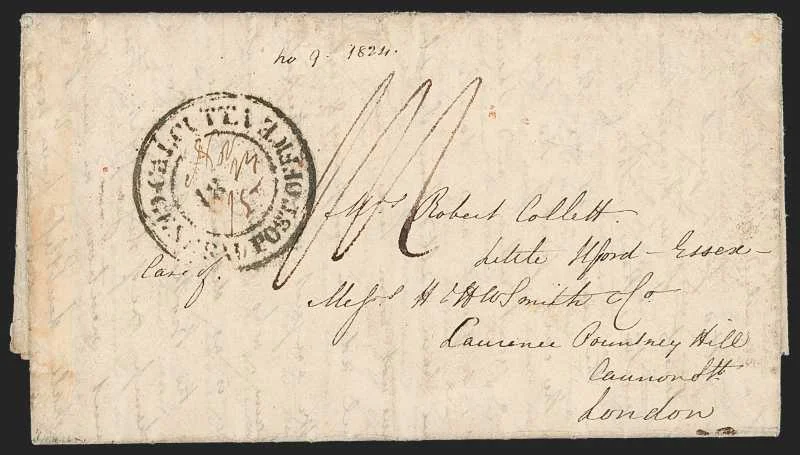 no 9. 1824.
CALCUTTA
GENERAL POST OFFICE
Mrs Robert Collett
Little Ilford - Essex -
Care of
Messrs H & HW Smith & Co
Laurence Pountney Hill
Cannon Stt
London